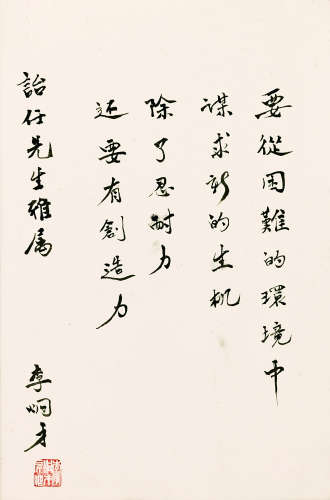 要從困難的環境中
謀求新的生机
除了忍耐力
还要有創造力
詒任先生雅属
李炯才